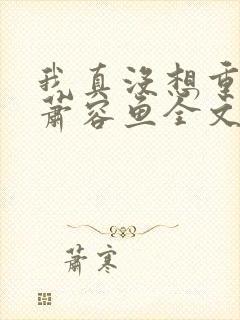 我真没想重
萧容鱼全文
萧寒